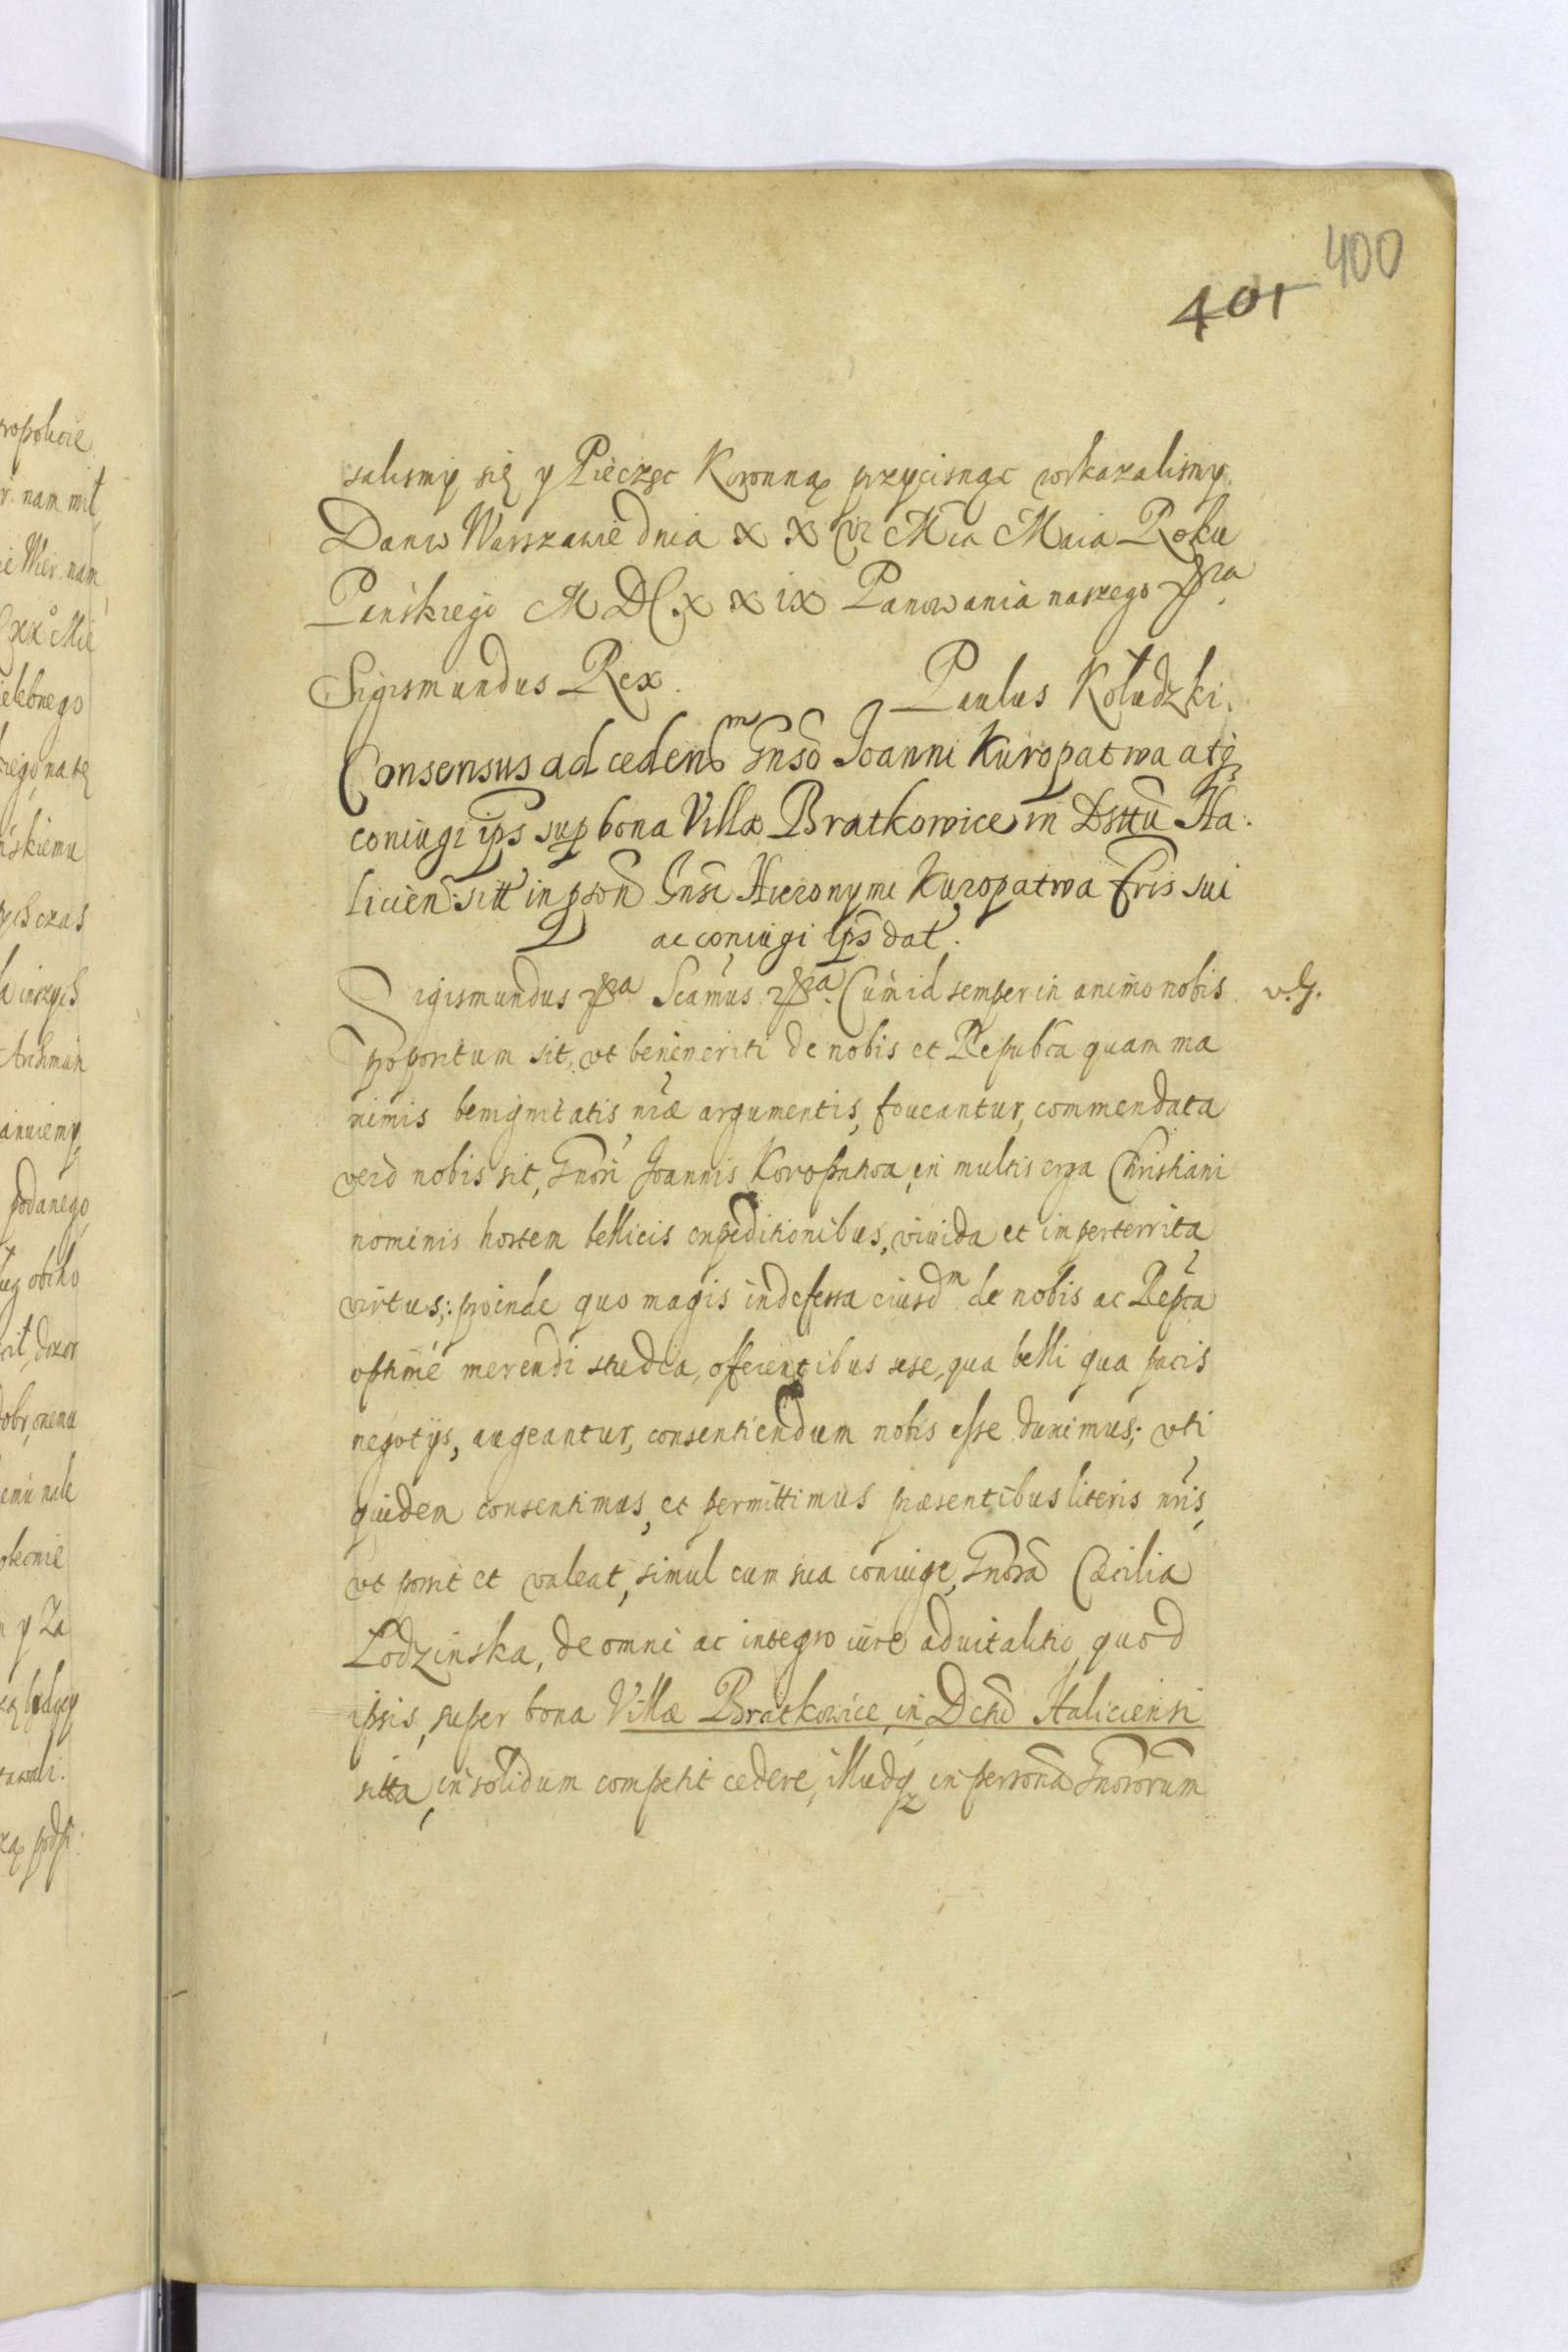 400
401
salismy się y Pieczęc Koronną przycisnąc roskazalismy.
Dan w Warszawie dnia XXVI Mca Maia Roku
Pańskiego MDCXXIX Panowania naszego &ra.
Sigismundus Rex. Paulus Kołudzki.
Consensus ad cedend^m Gnso Joanni Kuropatwa atq
coniugi ips sup bona Villæ Bratkowice in Dsttu Ha.
licien: sitt in pson Gnsi Hieronymi Kuropatwa fris sui
ac coniugi ips dat.
Sigismundus &ra Scamus &ra. Cum id semper in animo nobis v. G.
propositum sit, vt benemeriti de nobis et Repubca quam ma
nimis benignitatis nræ argumentis, foueantur, commendata
vero nobis sit, Gnosi Joannis Koropatwa, in multis erga Christiani
nominis hostem bellicis expeditionibus, viuida et imperterrita
virtus; proinde quo magis indefessa eiusd^m de nobis ac Repca
optime merendi studia, offerentibus sese, qua belli qua pacis
negotys, augeantur, consentiendum nobis esse duximus; vti
quidem consentimus, et permittimus præsentibus literis nris,
vt possit et valeat, simul cum sua coniuge, Gnosa Cæcilia
Lodzinska, de omni ac integro iure aduitalitio, quod
ipsis, super bona Villæ Bratkowice, in Dctu Haliciensi
sitta, in solidum competit cedere, illudq in persona Gnosorum